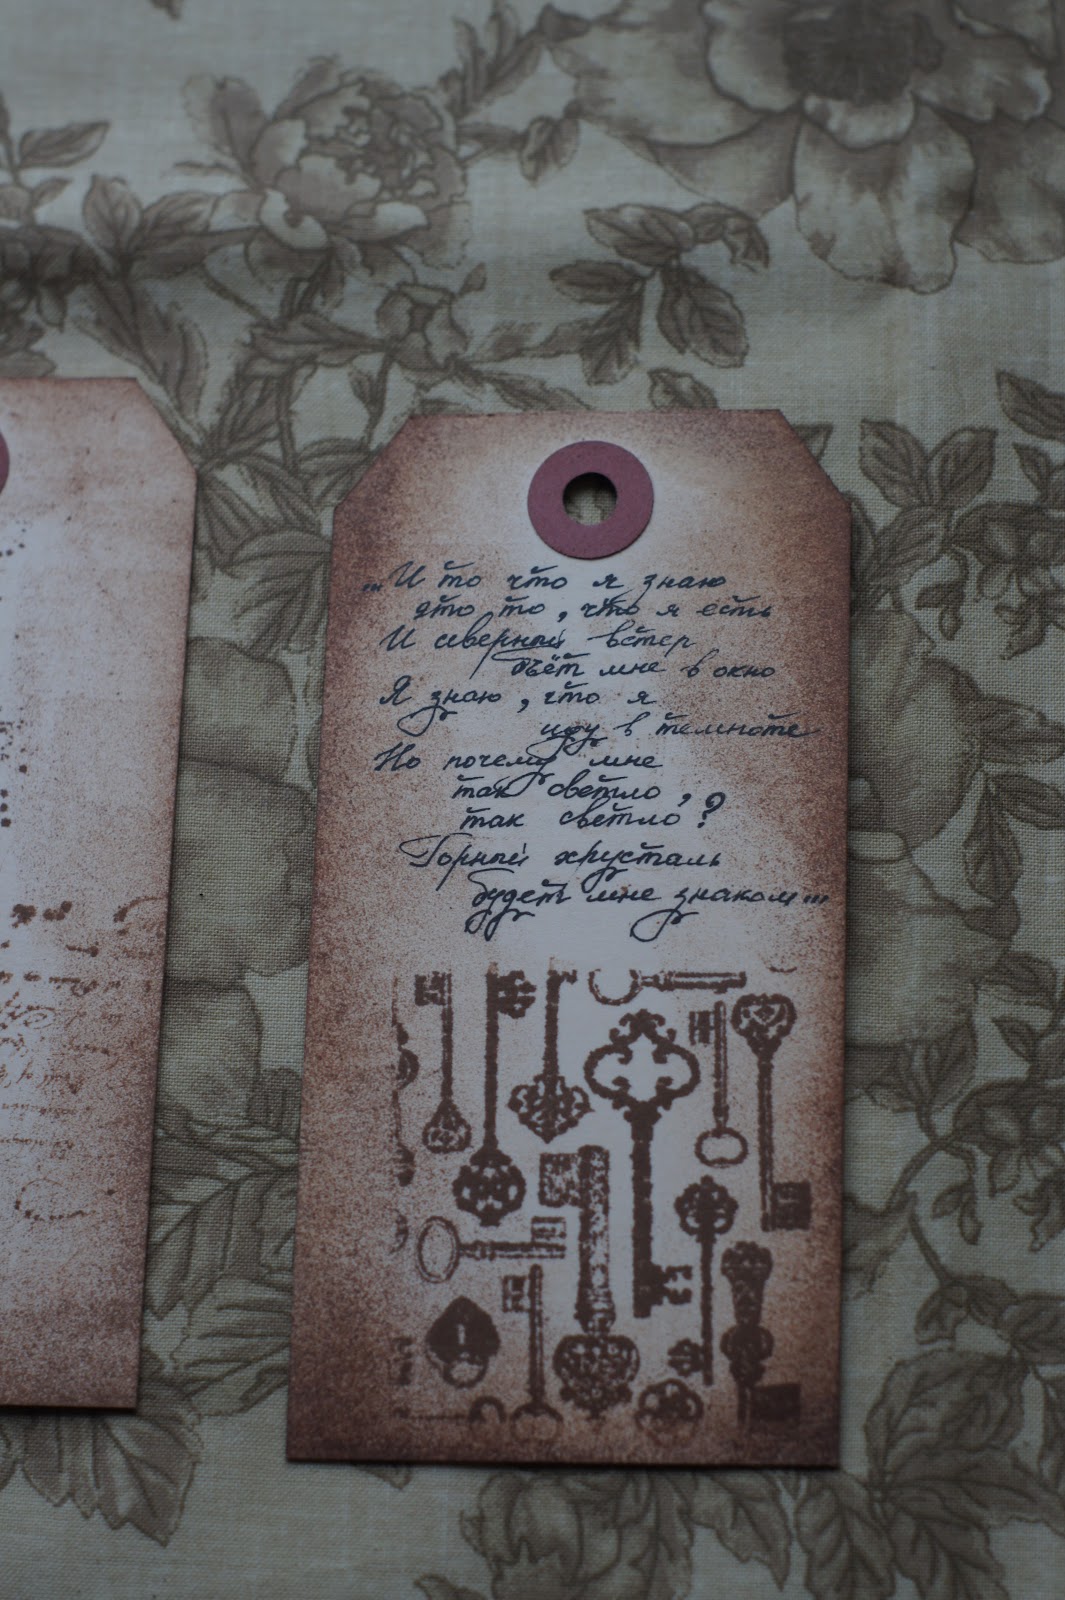 ...И то что я знаю
это то, что я есть
И северный ветер
бьёт мне в окно
Я знаю, что я
иду в темноте
Но почему мне
так светло,
так светло?
Горный хрусталь
будет мне знаком...